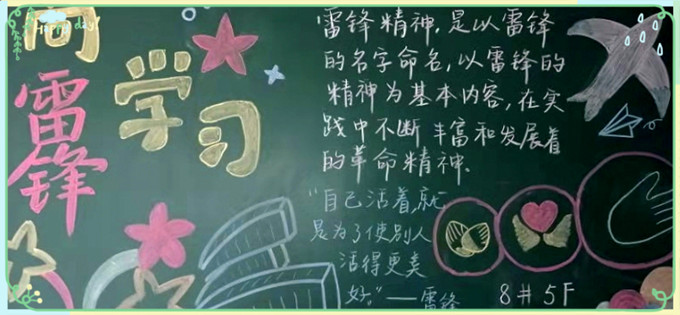 向
雷锋
学习
Happy day!
雷锋精神,是以雷锋
的名字命名,以雷锋的
精神为基本内容,在实
践中不断丰富和发展着
的革命精神.
"自己活着,就
是为了使别人
活得更美
好。"——雷锋
8井5F